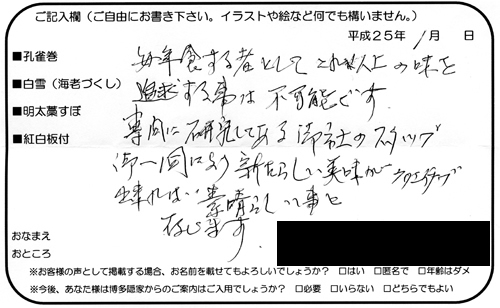 ご記入欄(ご自由にお書き下さい。イラストや絵など何でも構いません。)
平成25年 1月 日
■孔雀巻
■白雪(海老づくし)
■明太藁すぼ
■紅白板付
毎年食する者としてこれ以上の味を
追求する事は不可能です
専門に研究してある御社のスタッフ
御一同により新たらしい美味がクリエイティブ
出来れば素晴らしい事と
存じます。
おなまえ
おところ
※お客様の声として掲載する場合、お名前を載せてもよろしいでしょうか? □はい □匿名で □年齢はダメ
※今後、あなた様は博多隠家からのご案内はご入用でしょうか? □必要 □いらない □どちらでもよい